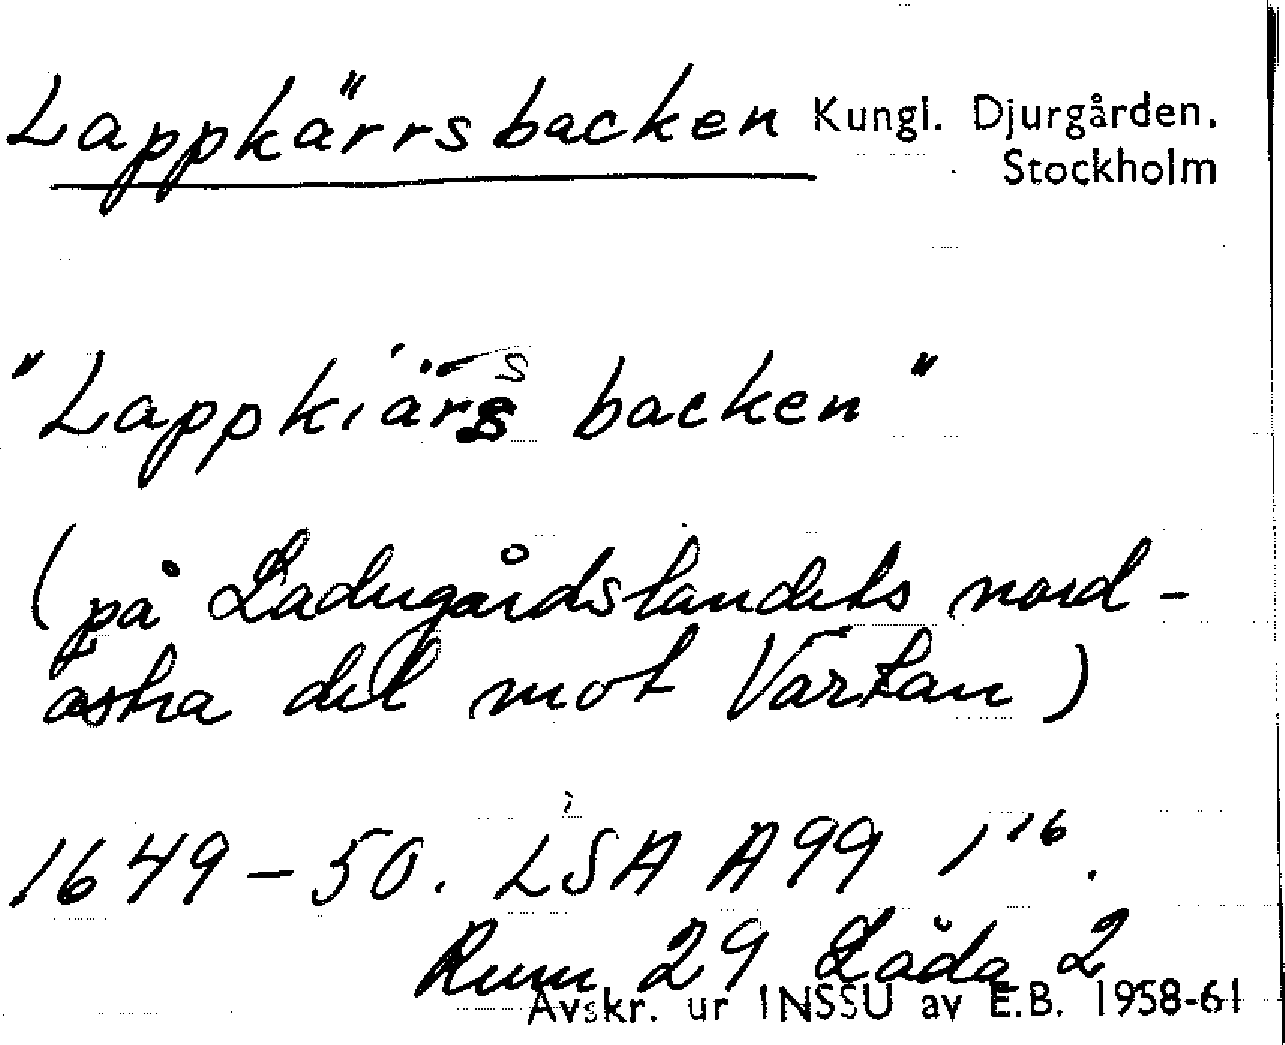 Lappkärrsbacken Kungl. Djurgården.
Stockholm
"Lappkiärs backen"
(på Ladugårdslandets nord-
östra del mot Värtan)
1649-50. LSA A99 1¹⁶.
Rum 29 Låda 2
Avskr. ur INSSU av E.B. 1958-61